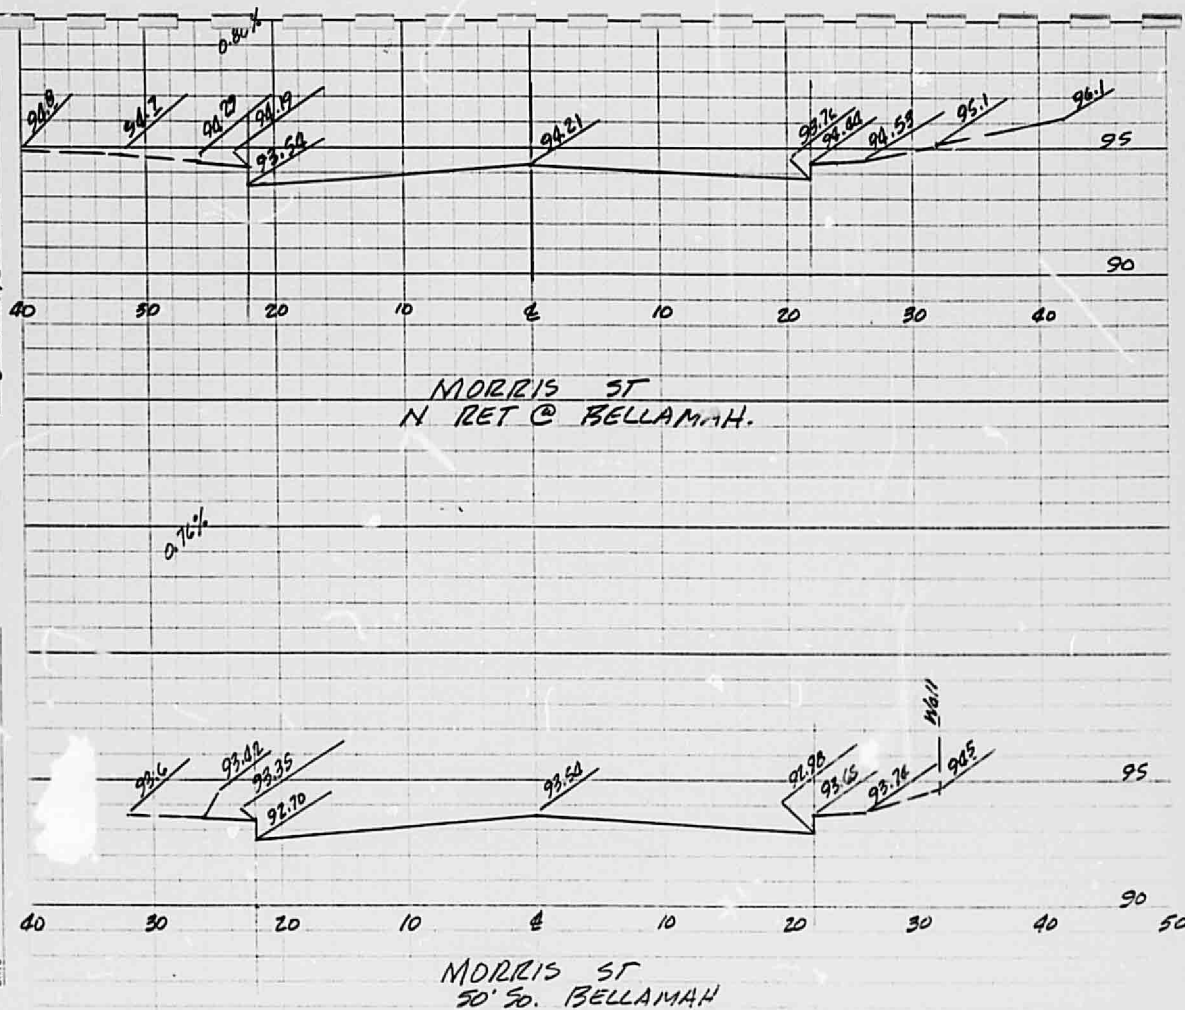 0.80%
94.8
94.2
94.29
94.19
93.54
94.21
93.76
94.44
94.53
95.1
96.1
95
90
40 30 20 10 ℄ 10 20 30 40
MORRIS ST
N RET @ BELLAMAH.
0.76%
93.6
93.42
93.35
92.70
93.54
92.98
93.65
93.76
Wall
94.5
95
90
40 30 20 10 ℄ 10 20 30 40 50
MORRIS ST
50' So. BELLAMAH